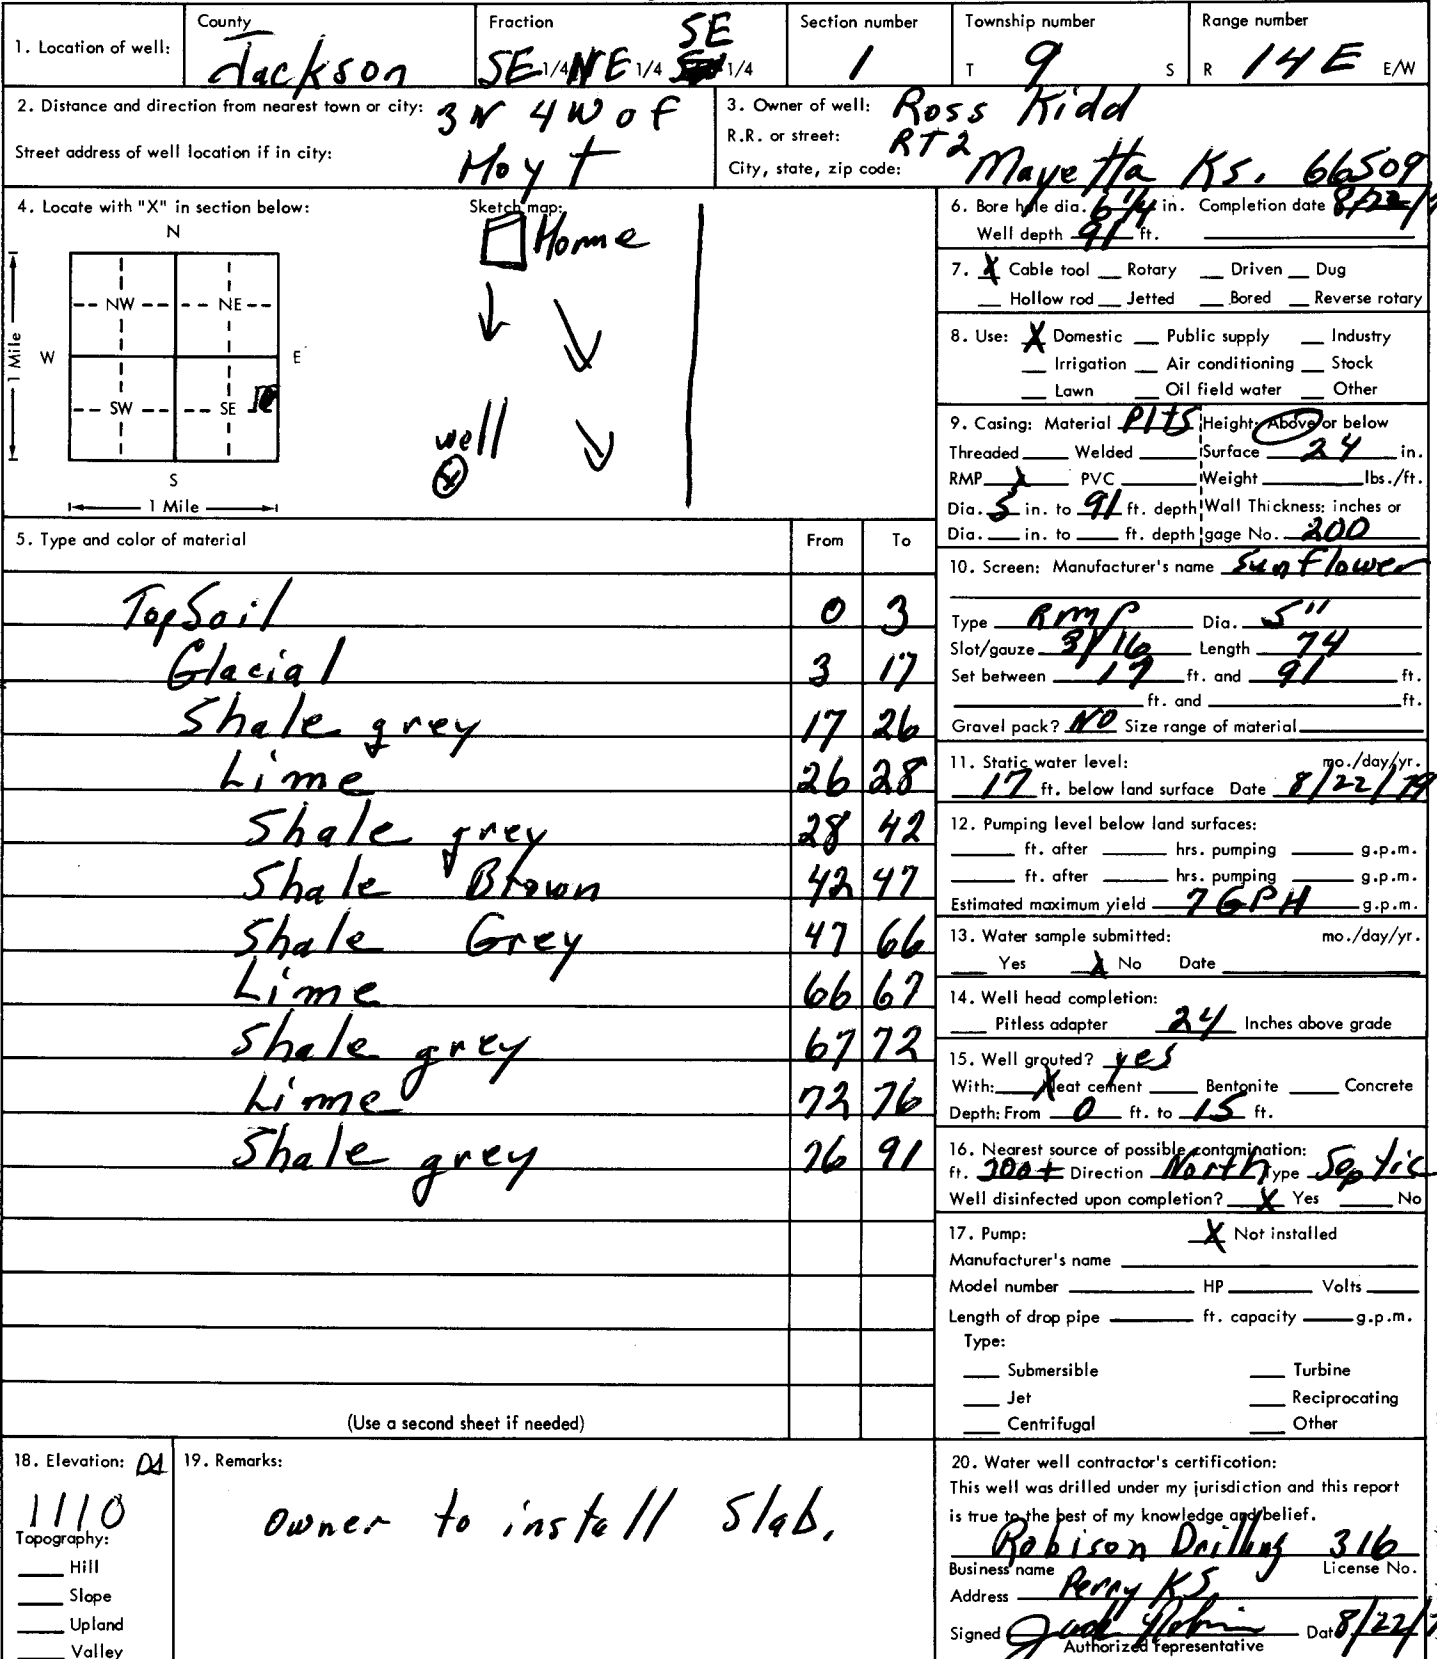 1. Location of well: County Jackson Fraction SE 1/4 NE 1/4 SE 1/4 Section number 1 Township number T 9 S Range number R 14 E E/W
2. Distance and direction from nearest town or city: 3 N 4 W of
Street address of well location if in city: Hoyt
3. Owner of well: Ross Kidd
R.R. or street: RT 2
City, state, zip code: Mayetta Ks. 66509
4. Locate with "X" in section below:
N
NW NE
W E
SW SE
S
1 Mile
1 Mile
Sketch map:
Home
well
5. Type and color of material From To
TopSoil 0 3
Glacial 3 17
Shale grey 17 26
Lime 26 28
Shale grey 28 42
Shale Brown 42 47
Shale Grey 47 66
Lime 66 67
Shale grey 67 72
Lime 72 76
Shale grey 76 91
(Use a second sheet if needed)
6. Bore hole dia. 6 1/4 in. Completion date 8/22/
Well depth 91 ft.
7. X Cable tool Rotary Driven Dug
Hollow rod Jetted Bored Reverse rotary
8. Use: X Domestic Public supply Industry
Irrigation Air conditioning Stock
Lawn Oil field water Other
9. Casing: Material Height: Above or below
Threaded Welded Surface 24 in.
RMP X PVC Weight lbs./ft.
Dia. 5 in. to 91 ft. depth Wall Thickness: inches or
Dia. in. to ft. depth gage No. 200
10. Screen: Manufacturer's name Sunflower
Type Rmp Dia. 5"
Slot/gauze 3/16 Length 74
Set between 17 ft. and 91 ft.
ft. and ft.
Gravel pack? NO Size range of material
11. Static water level: mo./day/yr.
17 ft. below land surface Date 8/22/79
12. Pumping level below land surfaces:
ft. after hrs. pumping g.p.m.
ft. after hrs. pumping g.p.m.
Estimated maximum yield 7 GPH g.p.m.
13. Water sample submitted: mo./day/yr.
Yes X No Date
14. Well head completion:
Pitless adapter 24 Inches above grade
15. Well grouted? yes
With: X Neat cement Bentonite Concrete
Depth: From 0 ft. to 15 ft.
16. Nearest source of possible contamination:
ft. Direction North Type Septic
Well disinfected upon completion? X Yes No
17. Pump: X Not installed
Manufacturer's name
Model number HP Volts
Length of drop pipe ft. capacity g.p.m.
Type:
Submersible Turbine
Jet Reciprocating
Centrifugal Other
18. Elevation:
1110
Topography:
Hill
Slope
Upland
Valley
19. Remarks:
owner to install Slab.
20. Water well contractor's certification:
This well was drilled under my jurisdiction and this report
is true to the best of my knowledge and belief.
Robison Drilling 316
Business name License No.
Address Perry KS
Signed Date 8/22/
Authorized representative